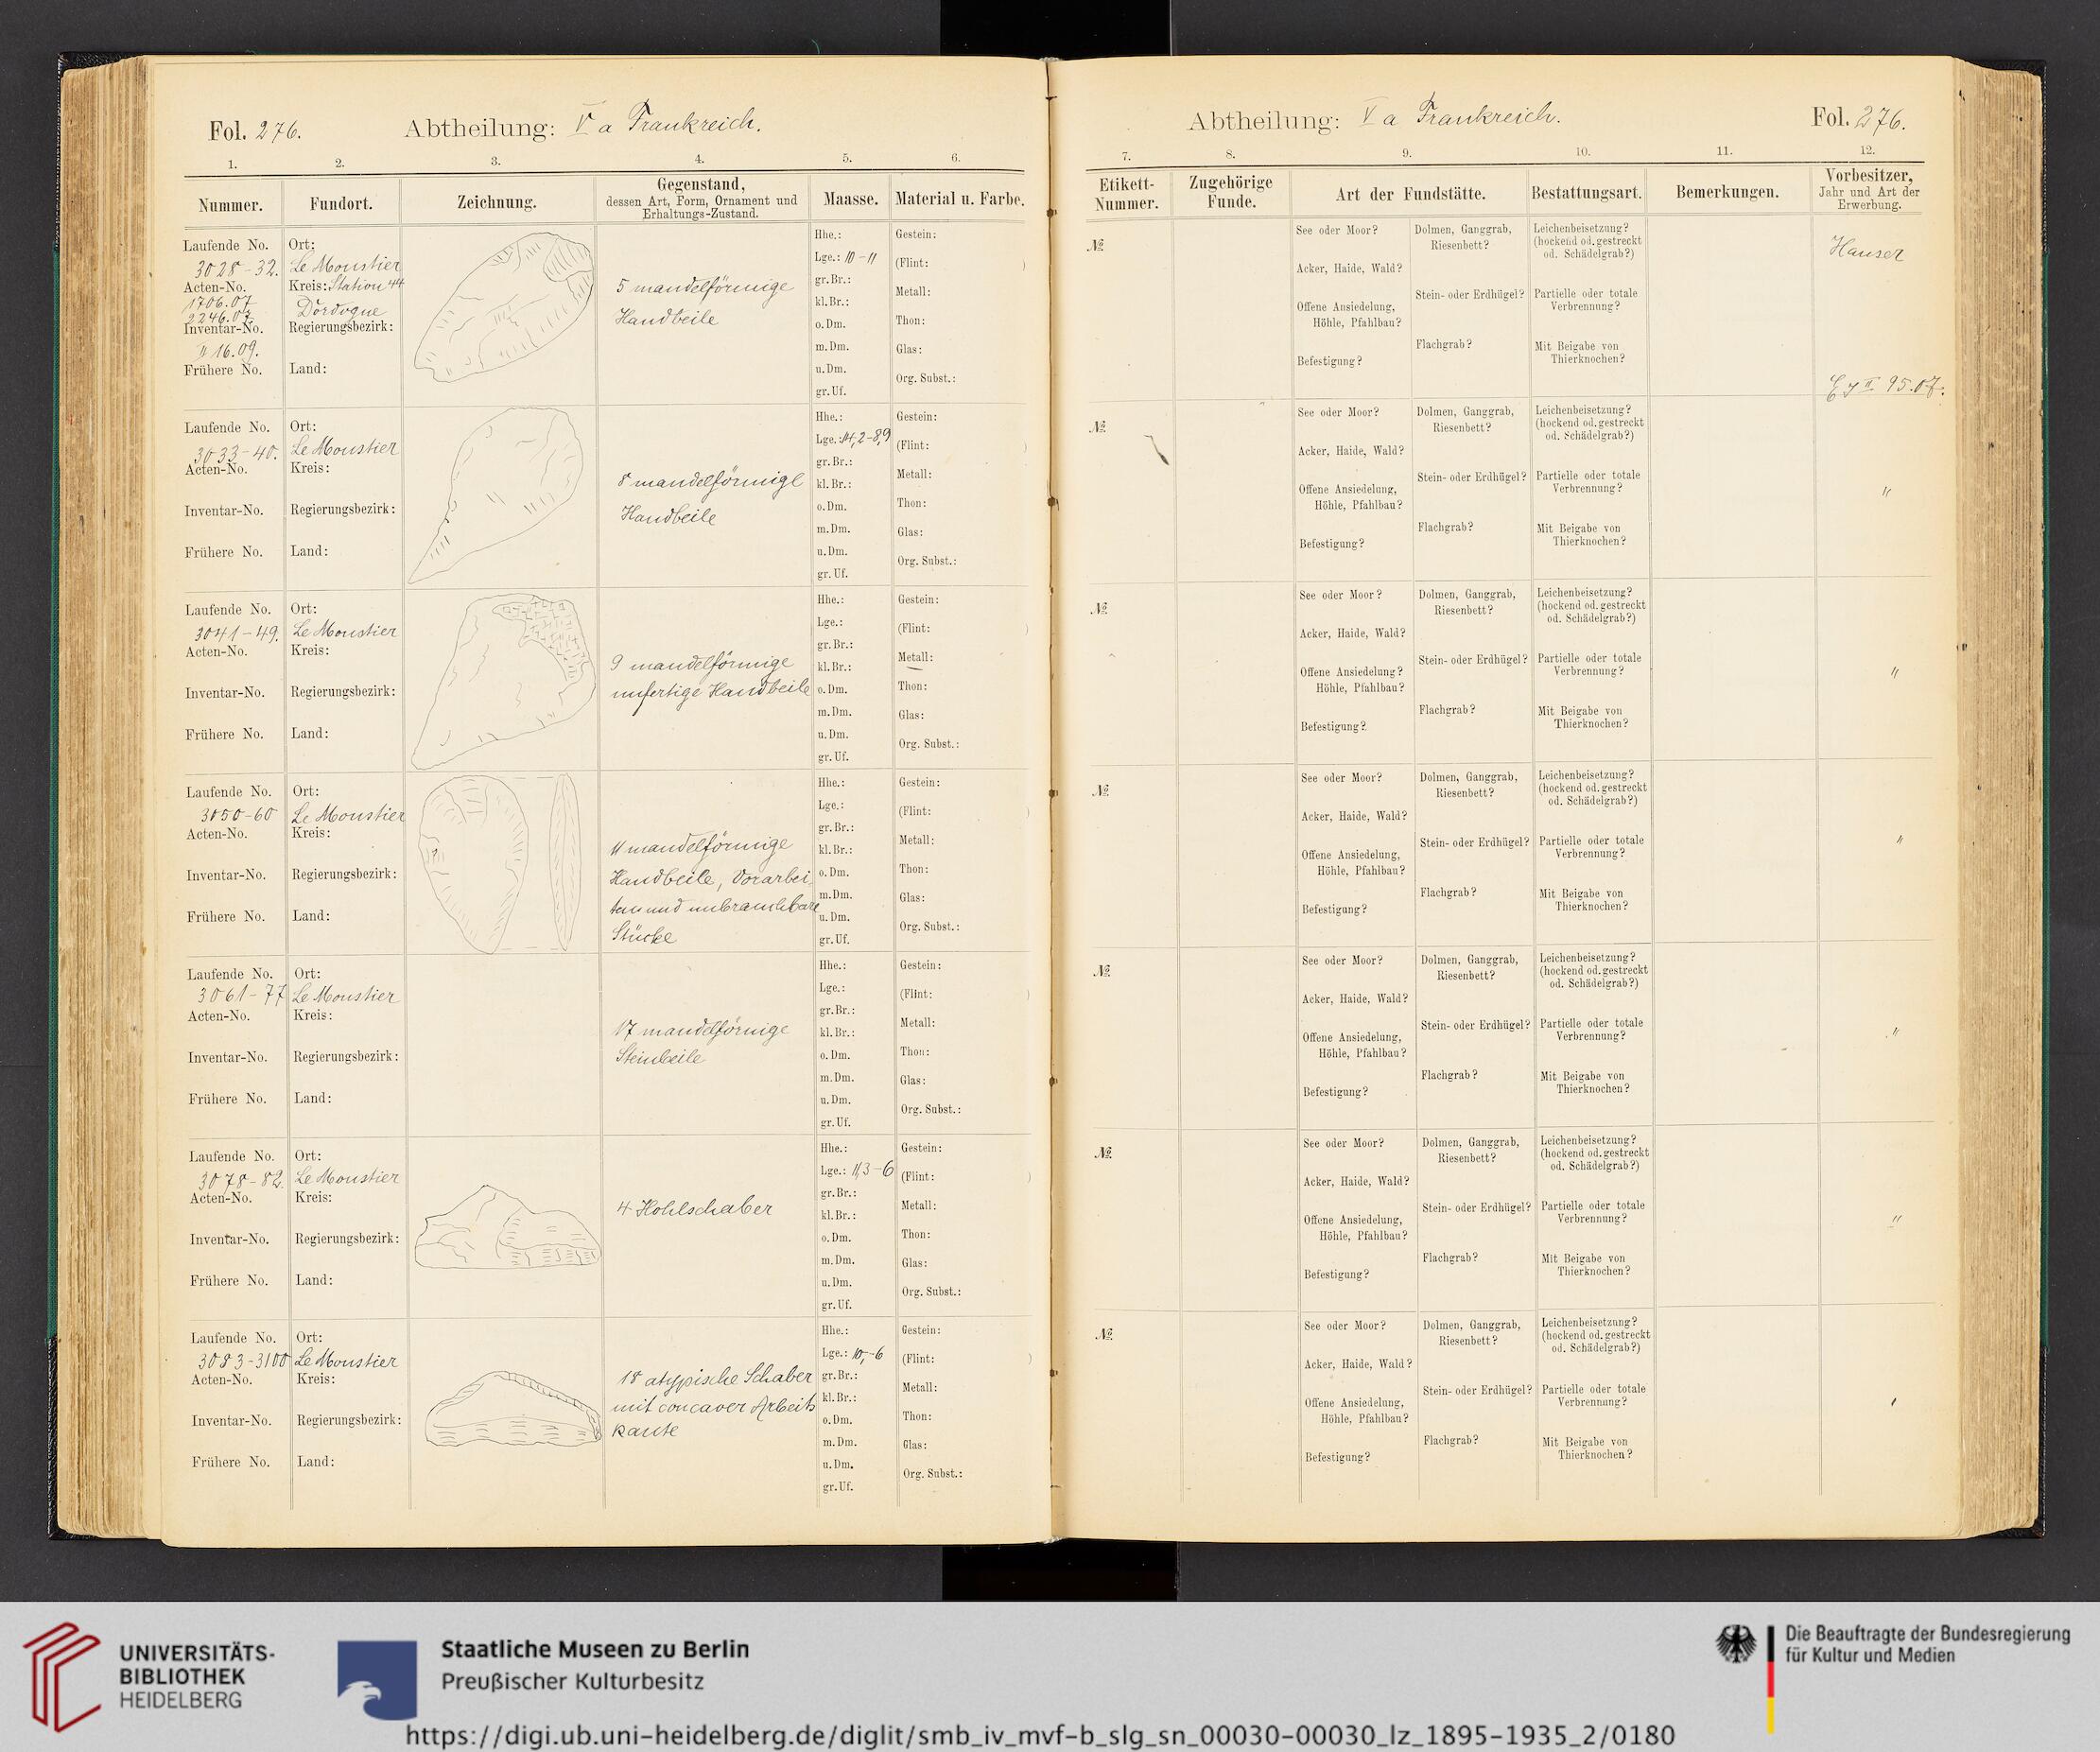 Fol. 276.
Abtheilung: V a Frankreich.
1. 2. 3. 4. 5. 6.
Nummer. Fundort. Zeichnung. Gegenstand, dessen Art, Form, Ornament und Erhaltungs-Zustand. Maasse. Material u. Farbe.
Laufende No.
3028-32.
Acten-No.
1706.07
2246.07
Inventar-No.
II 16.09.
Frühere No.
Ort:
Le Moustier
Kreis: Station 44
Dordogne
Regierungsbezirk:
Land:
5 mandelförmige
Handbeile
Hhe.:
Lge.: 10-11
gr. Br.:
kl. Br.:
o. Dm.
m. Dm.
u. Dm.
gr. Uf.
Gestein:
(Flint: )
Metall:
Thon:
Glas:
Org. Subst.:
Laufende No.
3033-40.
Acten-No.
Inventar-No.
Frühere No.
Ort:
Le Moustier
Kreis:
Regierungsbezirk:
Land:
8 mandelförmige
Handbeile
Hhe.:
Lge.: 14,2-8,9
gr. Br.:
kl. Br.:
o. Dm.
m. Dm.
u. Dm.
gr. Uf.
Gestein:
(Flint: )
Metall:
Thon:
Glas:
Org. Subst.:
Laufende No.
3041-49.
Acten-No.
Inventar-No.
Frühere No.
Ort:
Le Moustier
Kreis:
Regierungsbezirk:
Land:
9 mandelförmige
unfertige Handbeile
Hhe.:
Lge.:
gr. Br.:
kl. Br.:
o. Dm.
m. Dm.
u. Dm.
gr. Uf.
Gestein:
(Flint: )
Metall:
Thon:
Glas:
Org. Subst.:
Laufende No.
3050-60
Acten-No.
Inventar-No.
Frühere No.
Ort:
Le Moustier
Kreis:
Regierungsbezirk:
Land:
11 mandelförmige
Handbeile, Vorarbei
ten und unbrauchbare
Stücke
Hhe.:
Lge.:
gr. Br.:
kl. Br.:
o. Dm.
m. Dm.
u. Dm.
gr. Uf.
Gestein:
(Flint: )
Metall:
Thon:
Glas:
Org. Subst.:
Laufende No.
3061-77
Acten-No.
Inventar-No.
Frühere No.
Ort:
Le Moustier
Kreis:
Regierungsbezirk:
Land:
17 mandelförmige
Steinbeile
Hhe.:
Lge.:
gr. Br.:
kl. Br.:
o. Dm.
m. Dm.
u. Dm.
gr. Uf.
Gestein:
(Flint: )
Metall:
Thon:
Glas:
Org. Subst.:
Laufende No.
3078-82.
Acten-No.
Inventar-No.
Frühere No.
Ort:
Le Moustier
Kreis:
Regierungsbezirk:
Land:
4 Hohlschaber
Hhe.:
Lge.: 11,3-6
gr. Br.:
kl. Br.:
o. Dm.
m. Dm.
u. Dm.
gr. Uf.
Gestein:
(Flint: )
Metall:
Thon:
Glas:
Org. Subst.:
Laufende No.
3083-3100
Acten-No.
Inventar-No.
Frühere No.
Ort:
Le Moustier
Kreis:
Regierungsbezirk:
Land:
18 atypische Schaber
mit concaver Arbeits
kante
Hhe.:
Lge.: 10,-6
gr. Br.:
kl. Br.:
o. Dm.
m. Dm.
u. Dm.
gr. Uf.
Gestein:
(Flint: )
Metall:
Thon:
Glas:
Org. Subst.:
Abtheilung: V a Frankreich.
Fol. 276.
7. 8. 9. 10. 11. 12.
Etikett-Nummer. Zugehörige Funde. Art der Fundstätte. Bestattungsart. Bemerkungen. Vorbesitzer, Jahr und Art der Erwerbung.
№
See oder Moor?
Acker, Haide, Wald?
Offene Ansiedelung,
Höhle, Pfahlbau?
Befestigung?
Dolmen, Ganggrab,
Riesenbett?
Stein- oder Erdhügel?
Flachgrab?
Leichenbeisetzung?
(hockend od. gestreckt
od. Schädelgrab?)
Partielle oder totale
Verbrennung?
Mit Beigabe von
Thierknochen?
Hauser
II 95.07.
№
See oder Moor?
Acker, Haide, Wald?
Offene Ansiedelung,
Höhle, Pfahlbau?
Befestigung?
Dolmen, Ganggrab,
Riesenbett?
Stein- oder Erdhügel?
Flachgrab?
Leichenbeisetzung?
(hockend od. gestreckt
od. Schädelgrab?)
Partielle oder totale
Verbrennung?
Mit Beigabe von
Thierknochen?
"
№
See oder Moor?
Acker, Haide, Wald?
Offene Ansiedelung?
Höhle, Pfahlbau?
Befestigung?
Dolmen, Ganggrab,
Riesenbett?
Stein- oder Erdhügel?
Flachgrab?
Leichenbeisetzung?
(hockend od. gestreckt
od. Schädelgrab?)
Partielle oder totale
Verbrennung?
Mit Beigabe von
Thierknochen?
"
№
See oder Moor?
Acker, Haide, Wald?
Offene Ansiedelung,
Höhle, Pfahlbau?
Befestigung?
Dolmen, Ganggrab,
Riesenbett?
Stein- oder Erdhügel?
Flachgrab?
Leichenbeisetzung?
(hockend od. gestreckt
od. Schädelgrab?)
Partielle oder totale
Verbrennung?
Mit Beigabe von
Thierknochen?
"
№
See oder Moor?
Acker, Haide, Wald?
Offene Ansiedelung,
Höhle, Pfahlbau?
Befestigung?
Dolmen, Ganggrab,
Riesenbett?
Stein- oder Erdhügel?
Flachgrab?
Leichenbeisetzung?
(hockend od. gestreckt
od. Schädelgrab?)
Partielle oder totale
Verbrennung?
Mit Beigabe von
Thierknochen?
"
№
See oder Moor?
Acker, Haide, Wald?
Offene Ansiedelung,
Höhle, Pfahlbau?
Befestigung?
Dolmen, Ganggrab,
Riesenbett?
Stein- oder Erdhügel?
Flachgrab?
Leichenbeisetzung?
(hockend od. gestreckt
od. Schädelgrab?)
Partielle oder totale
Verbrennung?
Mit Beigabe von
Thierknochen?
"
№
See oder Moor?
Acker, Haide, Wald?
Offene Ansiedelung,
Höhle, Pfahlbau?
Befestigung?
Dolmen, Ganggrab,
Riesenbett?
Stein- oder Erdhügel?
Flachgrab?
Leichenbeisetzung?
(hockend od. gestreckt
od. Schädelgrab?)
Partielle oder totale
Verbrennung?
Mit Beigabe von
Thierknochen?
UNIVERSITÄTS-
BIBLIOTHEK
HEIDELBERG
Staatliche Museen zu Berlin
Preußischer Kulturbesitz
Die Beauftragte der Bundesregierung
für Kultur und Medien
https://digi.ub.uni-heidelberg.de/diglit/smb_iv_mvf-b_slg_sn_00030-00030_lz_1895-1935_2/0180